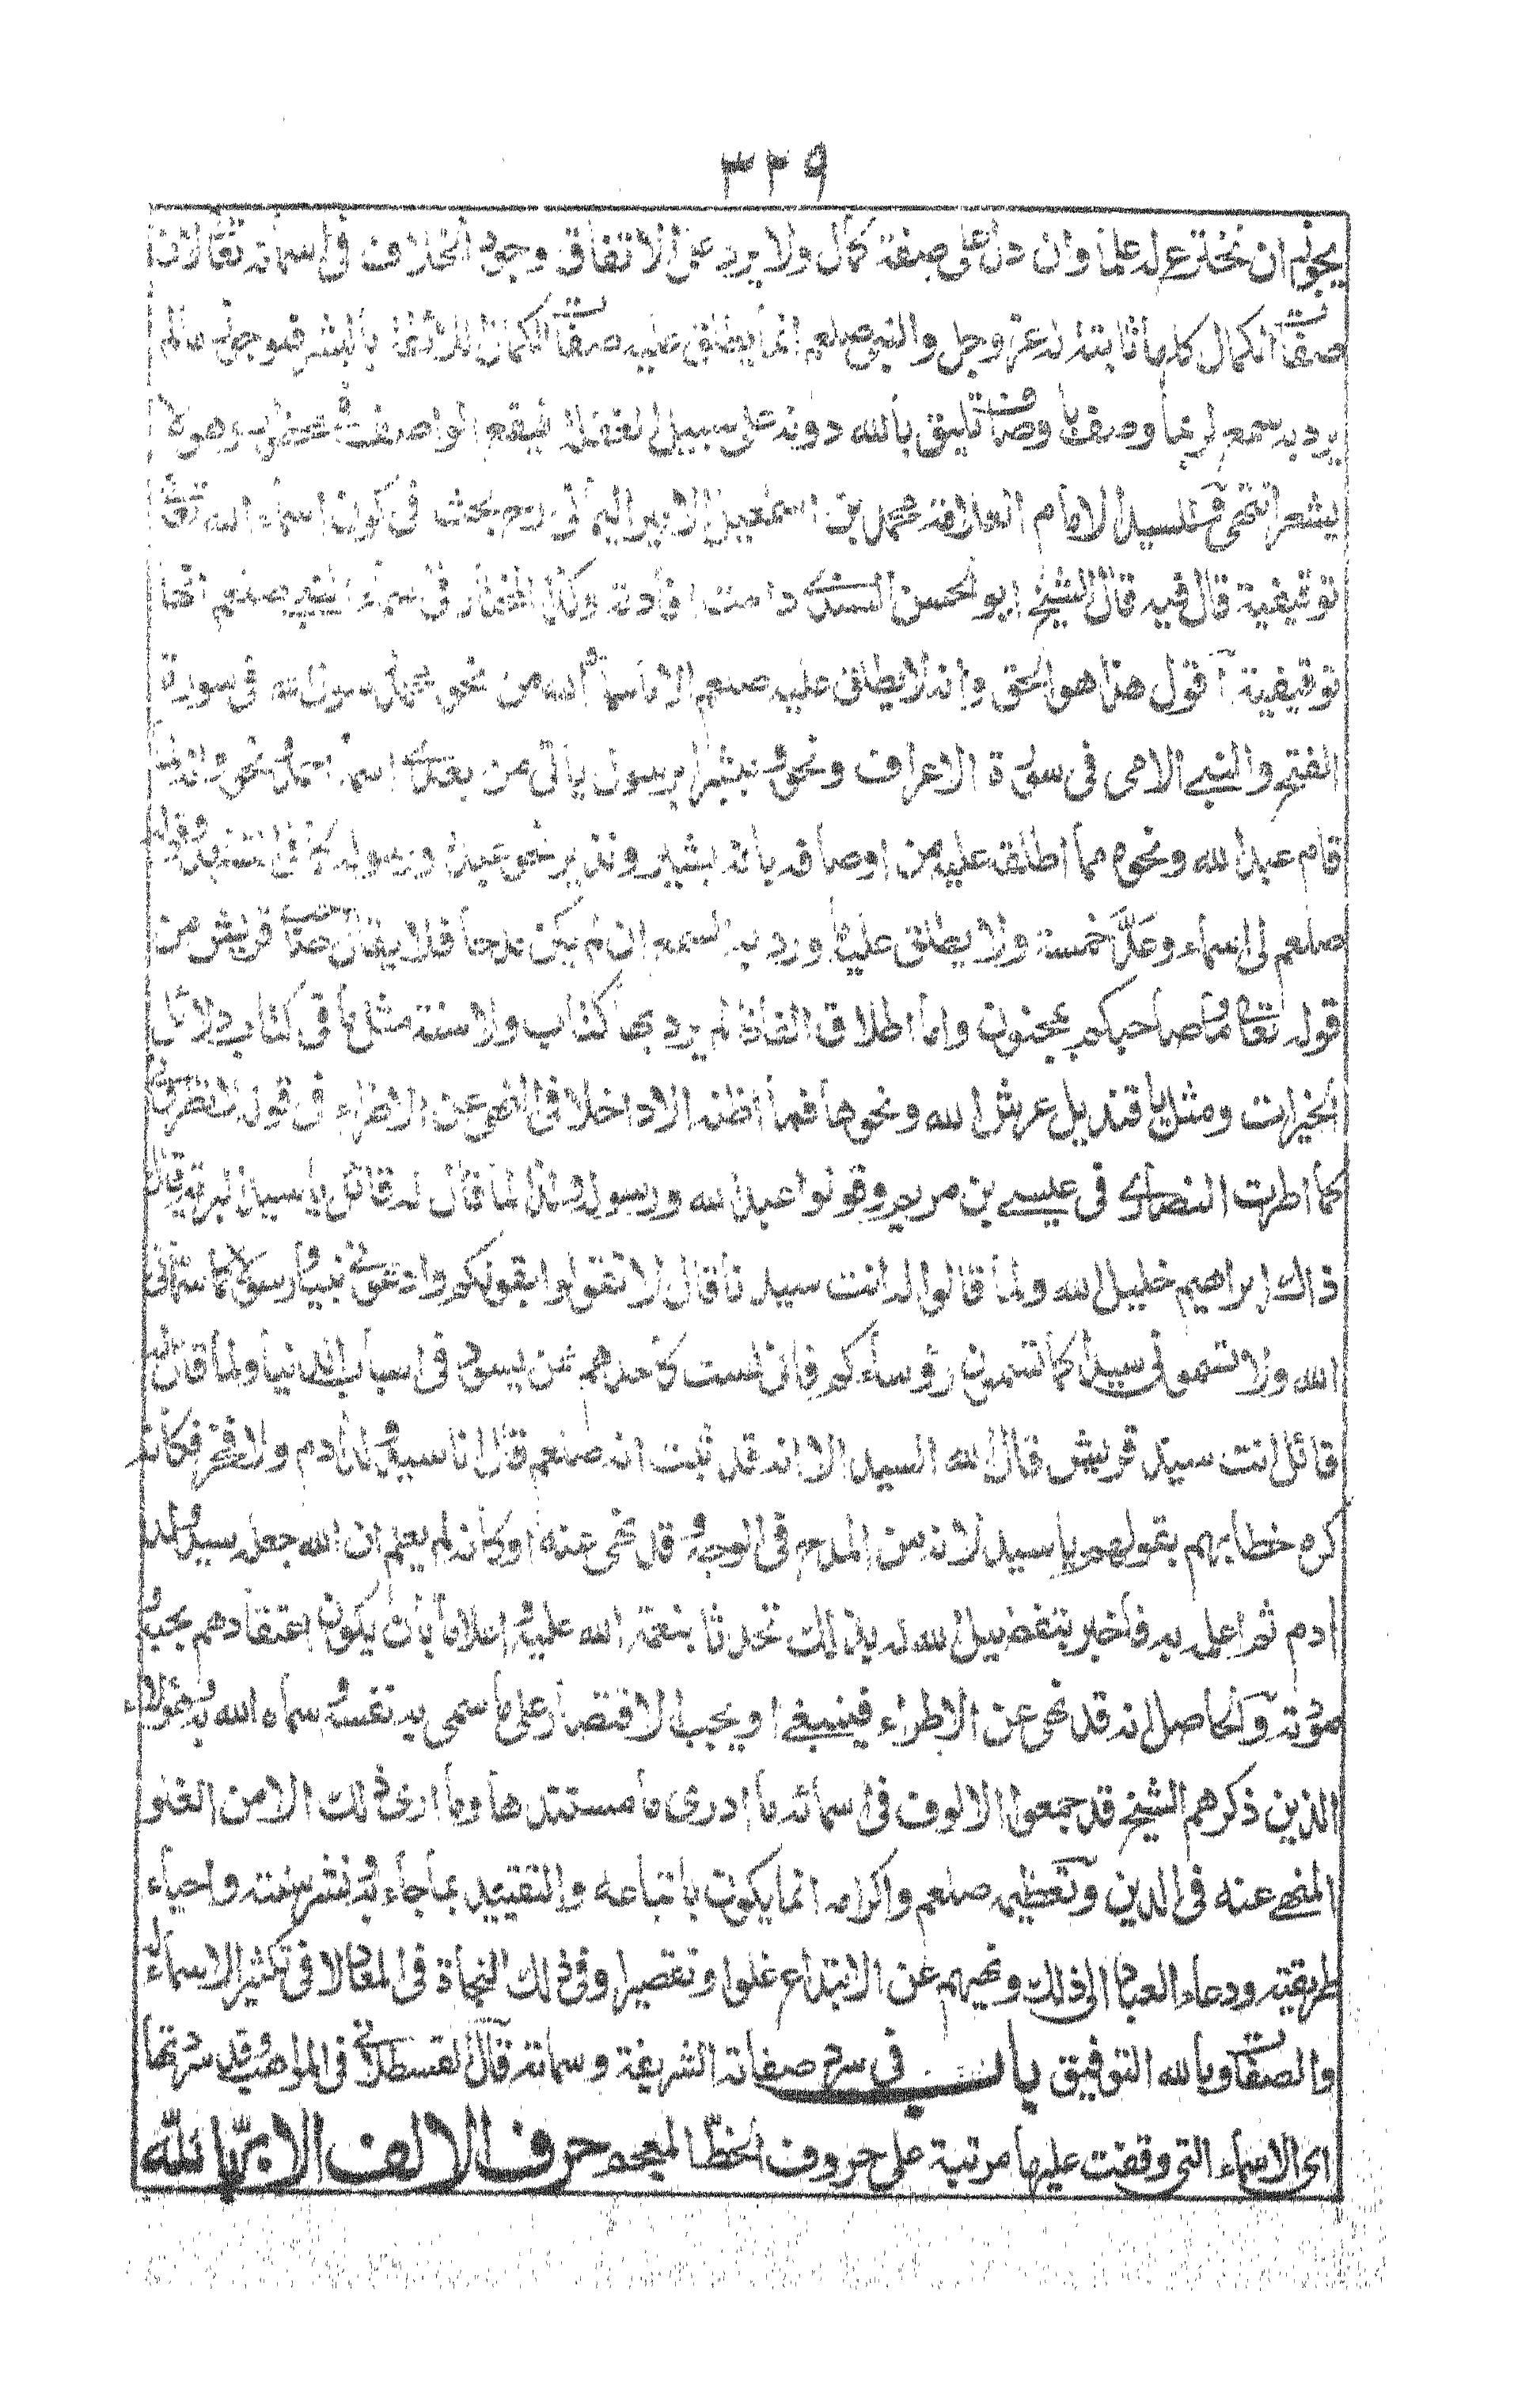 ٣٢٩
يجوز ان نخترع له علما وان دل على صفة كمال ولا يرد على الاتفاق وجود الخلاف في اسمائه تعالى لان
صفات الكمال كلها ثابتة له عز وجل والنبي صلعم انما يطلق عليه صفات الكمال اللائقة بالبشر فلو جوز ما لم
يرد به سمع لربما وصف باوصاف تليق بالله دونه على سبيل الغفلة فيقع الواصف في محظور وهو لا
يشعر انتهى وللسيد الامام العلامة محمد بن اسمعيل الامير اليماني رح بحث في كون اسماء الله تعالى
توقيفية قال فيه قال الشيخ ابو الحسن السندي دامت افادته وكذا المختار في اسماء النبي صلعم انها
توقيفية آ اقول هذا هو الحق وانه لا يطلق عليه صلعم الا ما سماه الله من نحو محمد رسول الله في سورة
الفتح والنبي الامي في سورة الاعراف ونحو مبشرا برسول ياتي من بعدي اسمه احمد ونحو وانه لما
قام عبد الله ونحوه مما اطلق عليه من اوصافه بانه بشير ونذير نحو عبده ورسوله كما في التشهد وقوله
صلعم لي اسماء وعدَّ خمسة ولا يطلق عليه ما ورد به السمع ان لم يكن مدحا فلا يقال صاحب قريش من
قوله تعالى وما صاحبكم بمجنون واما اطلاق الفاظ لم يرد بها كتاب ولا سنة مثل ما في كتاب دلائل
الخيرات ومثل يا قنديل عرش الله ونحوها فما اظنه الا داخلا في النهي عن الاطراء في قوله لا تطروني
كما اطرت النصارى في عيسى بن مريم وقولوا عبد الله ورسوله ولذا لما قال له قائل يا سيد البرية قال
ذاك ابراهيم خليل الله ولما قالوا له انت سيدنا قال لا تقولوا بقولكم وادعوني نبيا ورسولا كما سماني
الله ولا تسموني سيدا كما تسمون رؤساءكم فاني لست كاحدهم ممن يسود في اسباب الدنيا ولما قال له
قائل انت سيد قريش قال الله السيد الا انه قد ثبت انه صلعم قال انا سيد ولد آدم ولا فخر فكانه
كره خطابهم بقولهم يا سيد لانه من المدح في الوجه وقد نهى عنه او كانه لم يعلم ان الله جعله سيد ولد
ادم ثم اعلمه به فاخبر بتفضيل الله له بذلك تحدثا بنعمة الله عليه واعلاما بان يكون اعتقادهم بحبه و
مودته والحاصل انه قد نهى عن الاطراء فينبغي او يجب الاقتصار على ما سمى به نفسه وسماه الله به وهؤلاء
الذين ذكرهم الشيخ قد جمعوا الالوف في اسمائه ما ادري ما مستندها وما ارى ذلك الا من الغلو
المنهي عنه في الدين وتعظيمه صلعم واكرامه انما يكون باتباعه والتقييد بما جاء به ونشر سنته واحياء
طريقته ودعاء العباد الى ذلك ونهيهم عن الابتداع غلوا وتقصيرا وفي ذلك النجاة في المعاد لا في تكثير الاسماء له
والصفات وبالله التوفيق باب في سرد صفاته الشريفة وسماته قال القسطلاني في المواهب وقد سردتها
اي الاسماء التي وقفت عليها مرتبة على حروف الخط المعجم حرف الالف الابر بالله